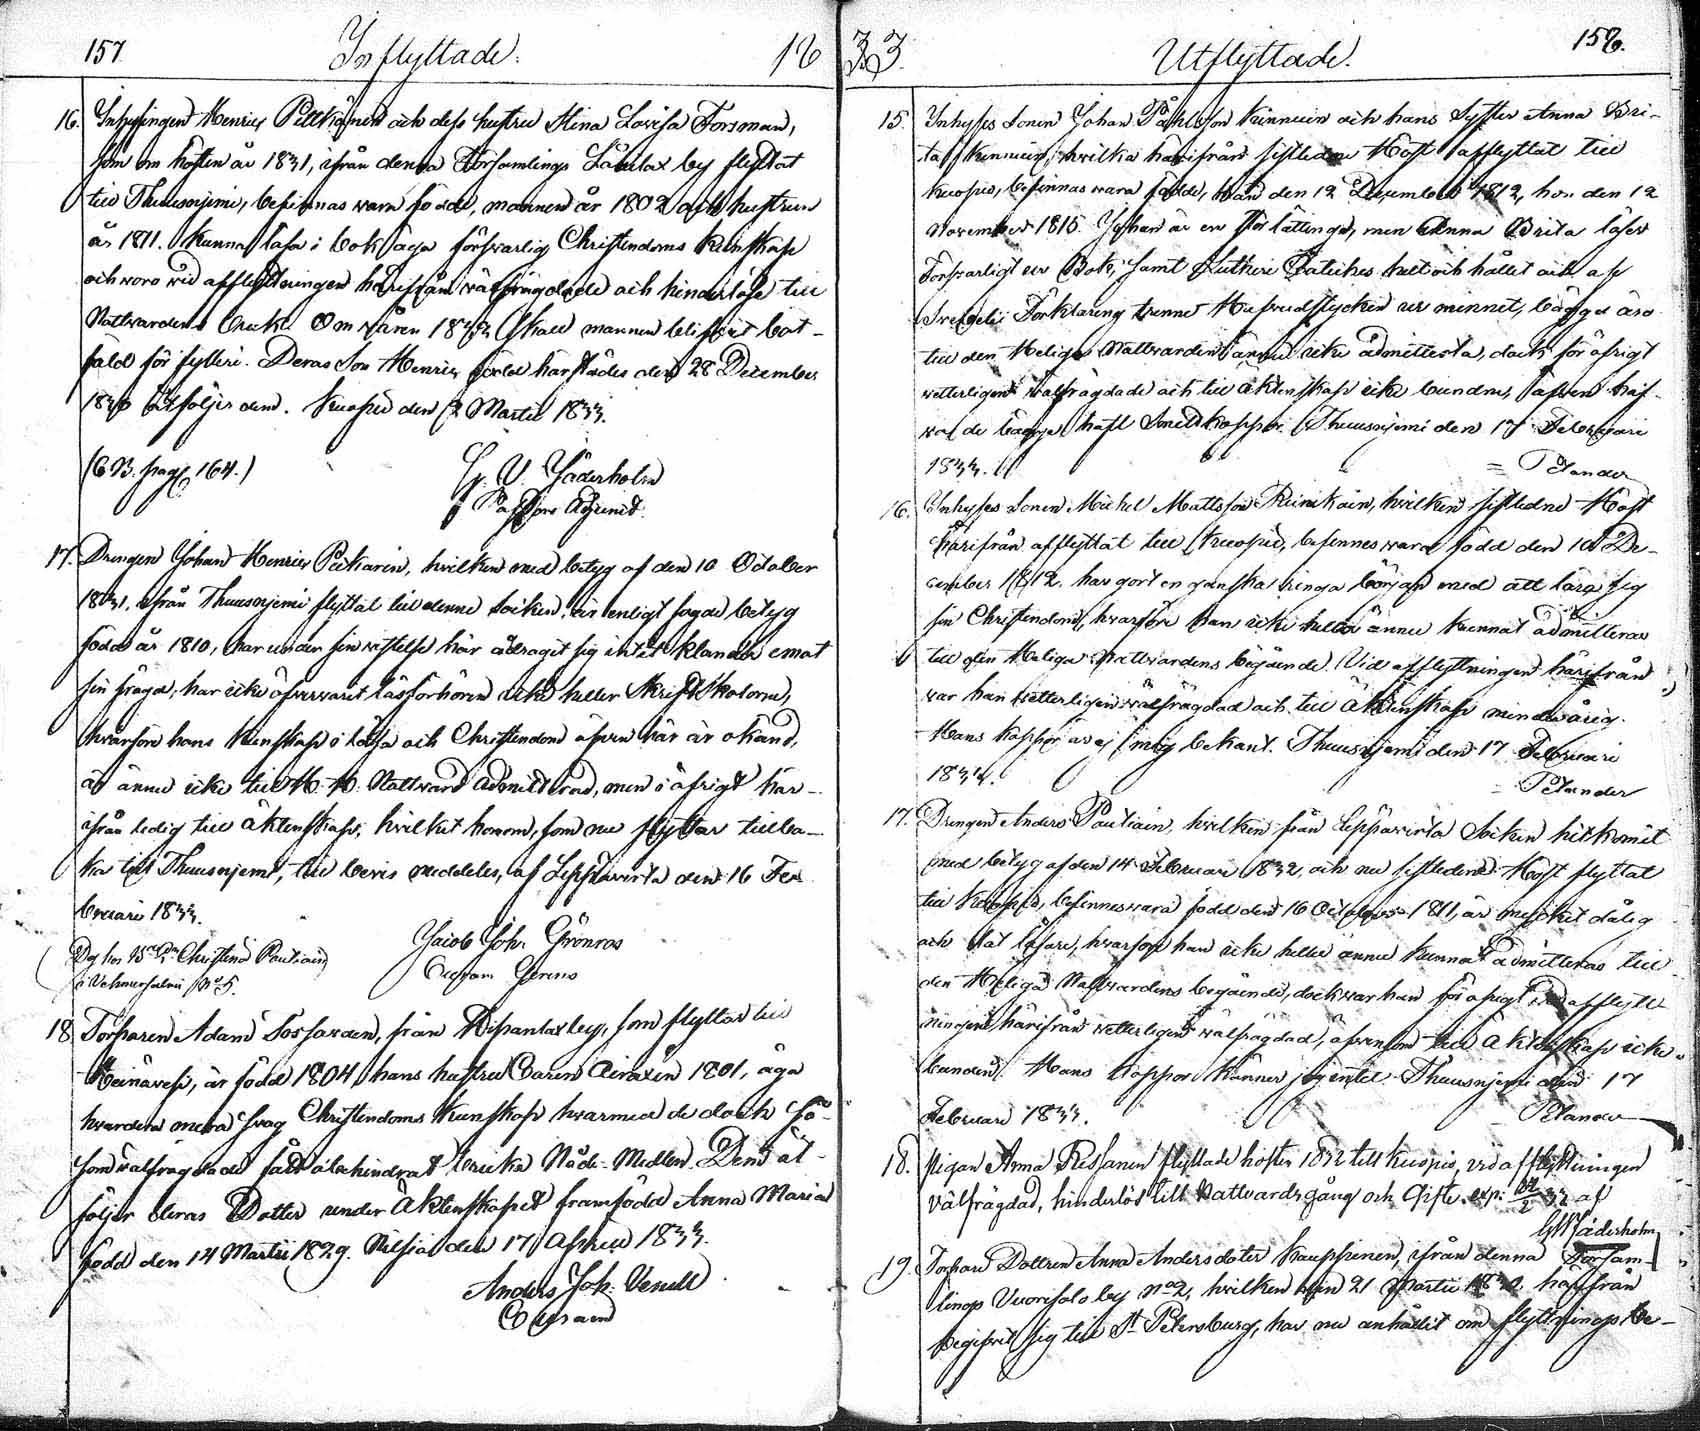 157. Inflyttade. 18
16. Inhysingen Henric Pittkänen och dess hustru Stina Lovisa Forsman,
som om hösten år 1831, ifrån denna Församlings Lamlax by flyttat
till Thuusnjemi, befinnas vara födde, mannen år 1802 och hustrun
år 1811. Kunna läsa i bok äga försvarlig Christendoms Kunskap
och woro wid afflyttningen härifrån wälfrägdade och hinderlöse till
Nattwardens bruk. Om wåren 1832 skall mannen blifwit bot-
fäld för fylleri. Deras Son Henric född härstädes den 28 December
åtföljer dem. Kuopio den 2 Martii 1833.
(C B. pag. 164.) G. W. Söderholm
Pastors Adjunct.
17. Drengen Johan Henric Päkarin, hvilken med betyg af den 10 October
1831, ifrån Thuusnjemi flyttat till denne Socken, är enligt sagde betyg
född år 1810, har under sin wistelse här ådragit sig intet klander emot
sin frägd, har icke öfverwarit läsförhören icke heller Skriftskolorne,
hwarföre hans kunskap i läsa och Christendom äfven här är okänd,
är ännu icke till H. H. Nattward admitterad, men i öfrigt här-
ifrån ledig till Äktenskap, hvilket honom, som nu flyttar tillba-
ka till Thuusnjemi, till bevis meddeles, af Leppävirta den 16 Fe-
bruari 1833.
Jacob Joh. Grönroos
Dr hos Christina Pautiain
i Vehmersalmi No 5.
18. Torparen Adam Sossonen, från by, som flyttar till
Heinävesi, är född 1804, hans hustru Caren Airaxin 1801, äga
hwardera mera swag Christendoms kunskap hwarmed de dock så-
som wälfrägdade fått obehindrat bruka Nåde-Medlen. Dem åt-
följer deras Dotter under Äktenskapet framfödd Anna Maria
född den 14 Martii 1829. Nilsiä den 17 April 1833.
Anders Joh. Venell
33. Utflyttade. 158.
15. Inhyses Sonen Johan Påhlsson Kinnuin och hans Syster Anna Bri-
ta Kinnuin, hvilka härifrån sistledne Höst afflyttat till
Kuopio, befinnas wara födde, han den 12 December 1812, hon den 12
November 1815. Johan är en lättinge, men Anna Brita läser
Förswarligt ur Bok, samt Lutheri Cateches helt och hållet och af
Svebelii Förklaring trenne Hufvudstycken ur minnet, bägge äro
till den Heliga Nattwarden ännu icke admitterta, dock för öfrigt
wetterligen wälfrägdade och till äktenskap icke bundne, äfven haf-
wa de bägge haft Smittkoppor. Thuusnjemi den 17 Februari
1833. = Pelander
16. Inhyses Sonen Michel Mattsson Reinikain, hvilken sistledne Höst
härifrån afflyttat till Kuopio, befinnes wara född den 10 De-
cember 1812, har gort en ganska ringa början med att lära sig
sin Christendom, hwarföre han icke heller ännu kunnat admitteras
till den Heliga Nattwardens begående. Vid afflyttningen härifrån
war han wetterligen wälfrägdad och till Äktenskap minderårig.
Hans koppor är ej mig bekant. Thuusnjemi den 17 Februari
1833. = Pelander
17. Drengen Anders Pautiain, hvilken från Leppävirta Socken hitkommit
med betyg af den 14 Februari 1832, och nu sistledne Höst flyttat
till Kuopio, befinnes wara född den 16 October 1811, är mycket dålig
och lat läsare, hwarföre han icke heller ännu kunnat admitteras till
den Heliga Nattwardens begående, dock war han för öfrigt wid afflytt-
ningen härifrån wetterligen wälfrägdad, äfvensom till Äktenskap icke
bunden. Hans koppor känner jag intet. Thuusnjemi den 17
Februari 1833. = Pelander
18. Pigan Anna Rissanen flyttade hösten 1832 till Kuopio, vid afflyttningen
välfrägdad, hinderlös till Nattvardsgång och Gifte. exp. 33 af
GWSöderholm
19. Torpare Dottren Anna Andersdoter Kauppinen, ifrån denna Församl-
lings Vuorisalo by No 2, hvilken den 21 Martii 1832 härifrån
begifvit sig till St Petersburg, har nu anhållit om flyttnings be-